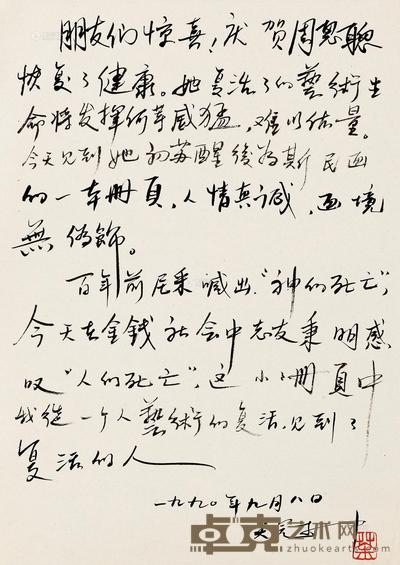 朋友们惊喜,庆贺周思聪
恢复了健康。她复活了的藝術生
命将发挥何等威猛,难以估量。
今天见到她初苏醒後為斯民画
的一本册頁,人情真诚,画境
無偽飾。
百年前尼采喊出“神的死亡”,
今天在金錢社会中志友秉明感
叹“人的死亡”,这小小册頁中
我從一个人藝術的复活,见到了
复活的人
一九九〇年九月八日
吴冠中
卓克艺术网
www.zhuokearts.com